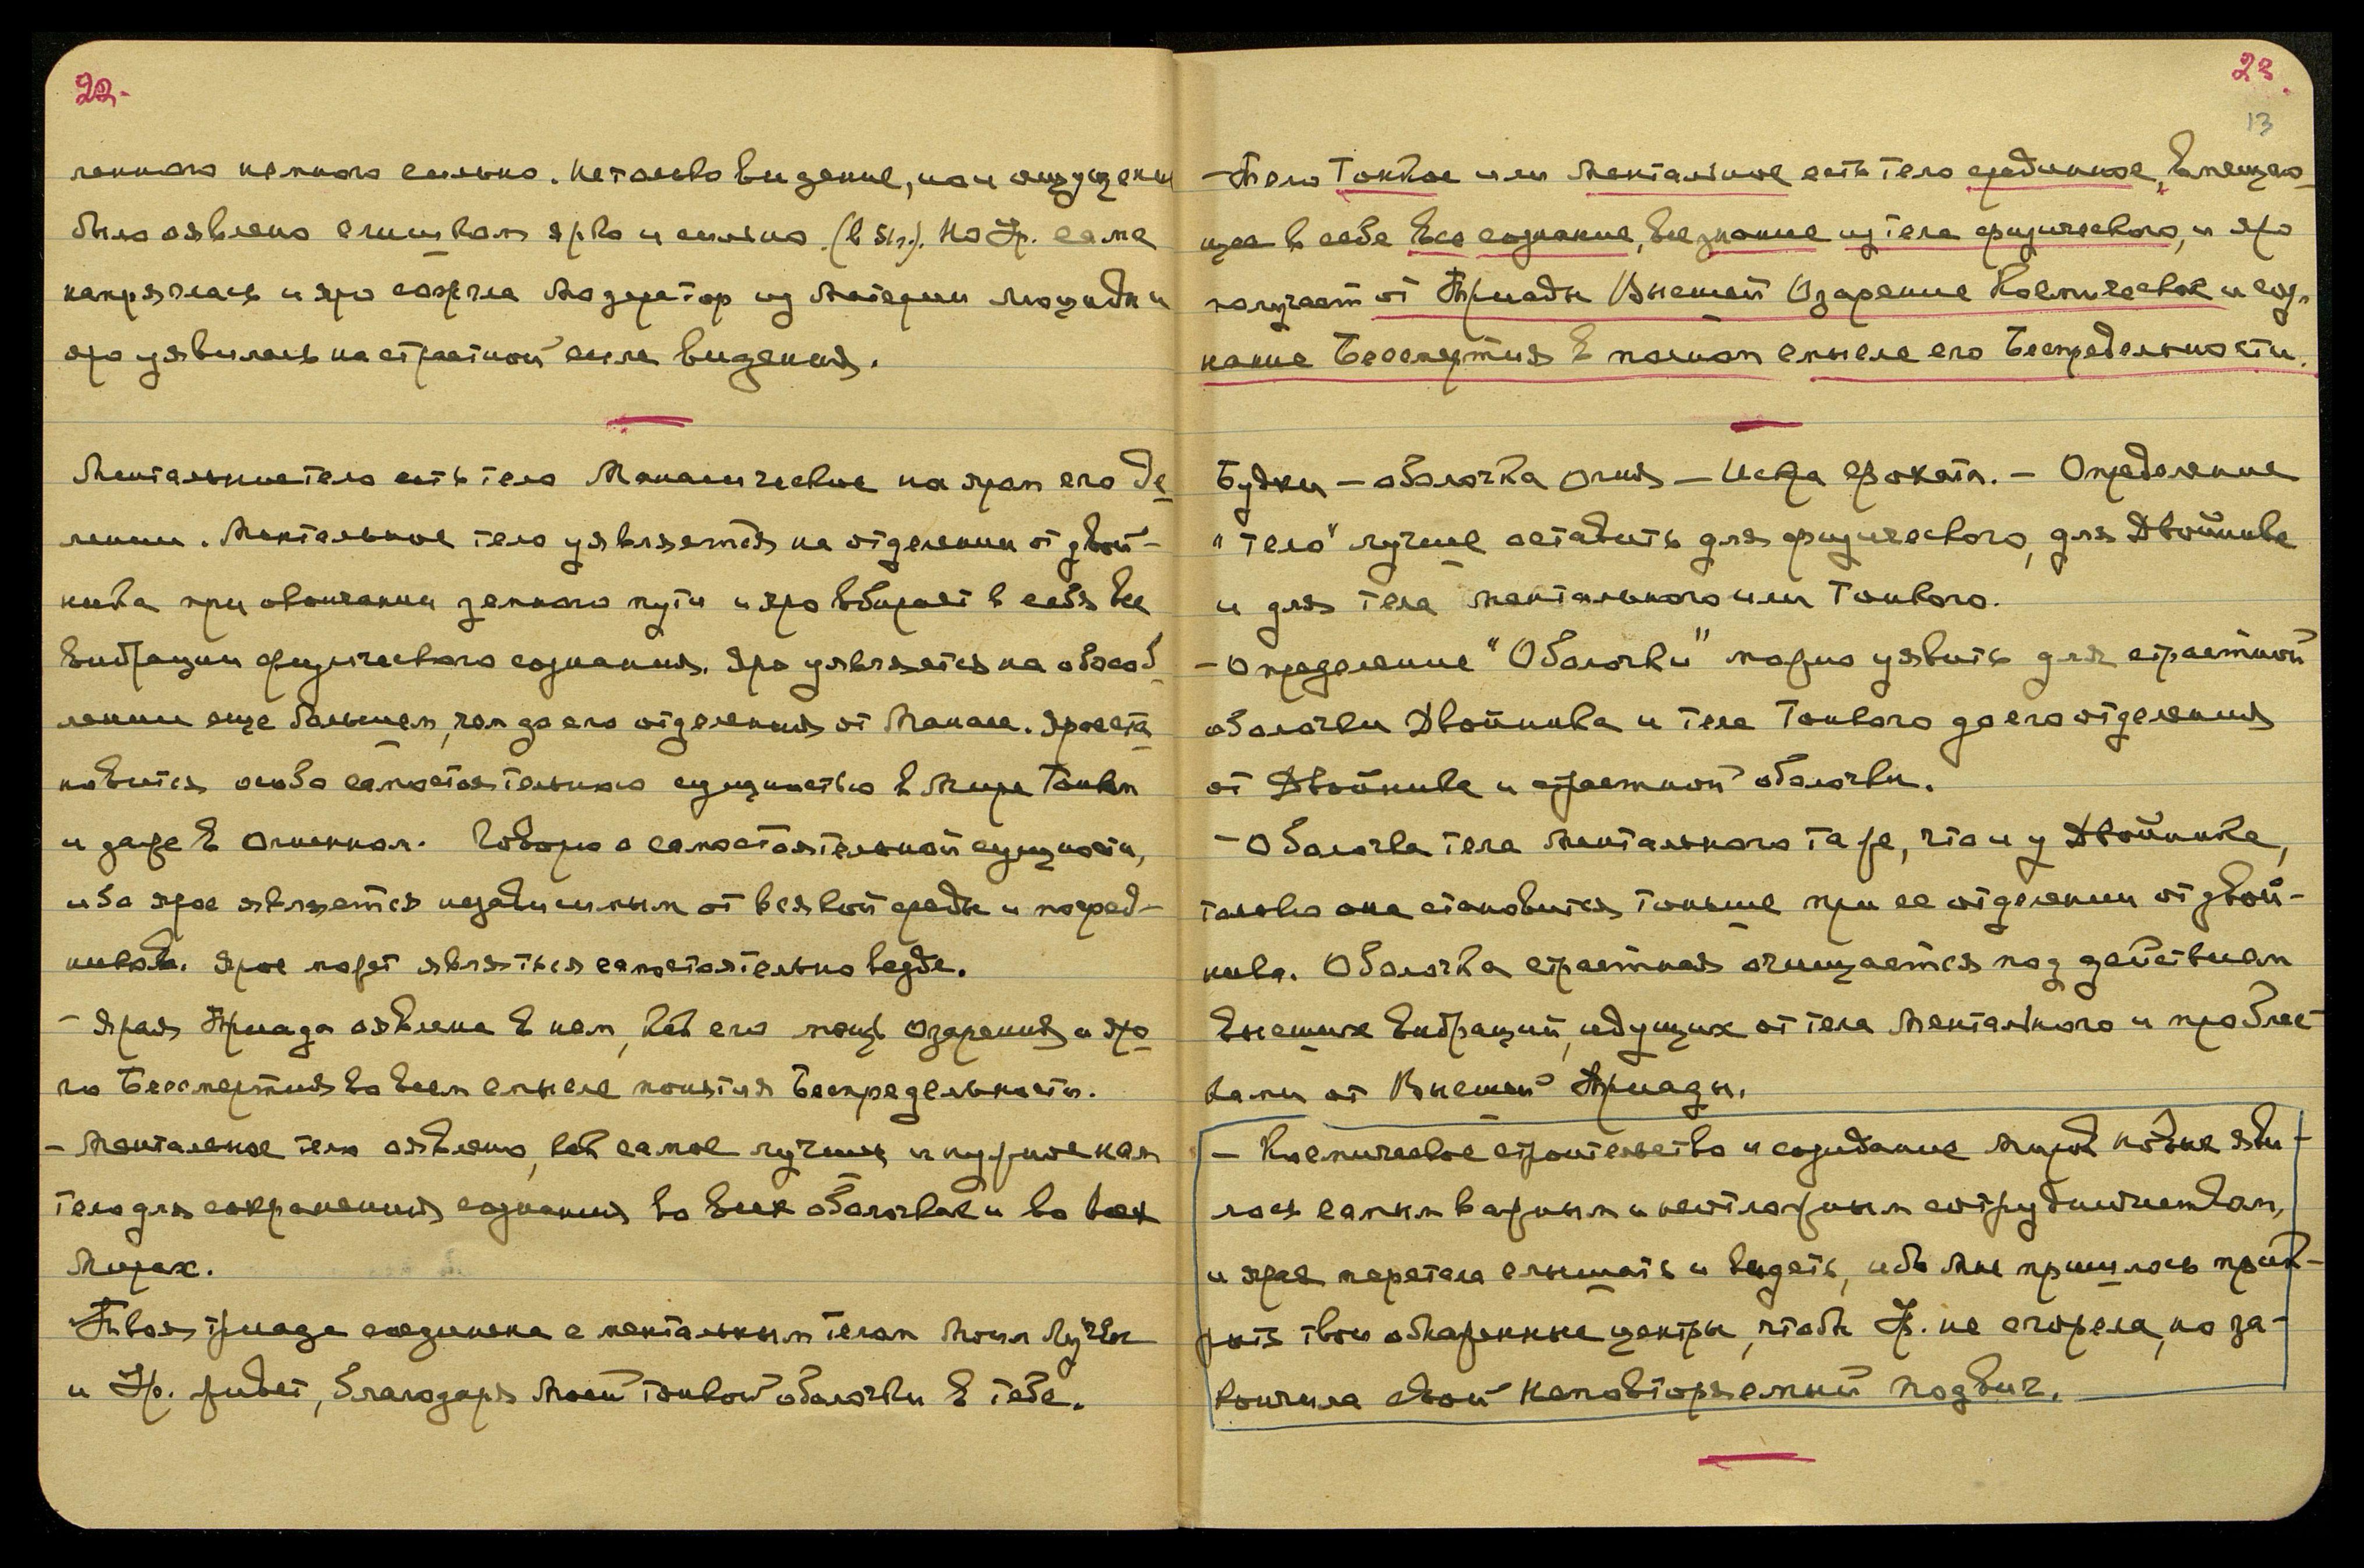 22.
ленного немного сильно. Не только видение, но и ощущение
было явлено слишком ярко и сильно. Но Ур. сама
напряглась и яро сожгла Модератор из Материи Люциды и
яро уявилась на страстной силе видения.
Ментальное тело есть тело Манасическое на яром его де
лении. Ментальное тело уявляется на отделении от двой-
ника при окончании земного пути и яро вбирает в себя все
вибрации физического сознания. Яро уявляется на обособ
лении еще большем, чем до его отделения от Манаса. Яро ста
новится особо самостоятельной сущностью в Мире Тонком
и даже в Огненном. Говорю о самостоятельной сущности,
ибо ярое является независимым от всякой среды и посред-
ников. Ярое может являться самостоятельно везде.
- Ярая Триада явлена в нем, как его мощь озарения и яро
го Бессмертия во всем смысле понятия Беспредельности.
- Ментальное тело явлено, как самое лучшее и нужное нам
тело для сохранения сознания во всех оболочках и во всех
Мирах.
Твоя триада соединена с ментальным телом Моим Лучом
и Ур. живет, благодаря Моей тонкой оболочки в тебе.
23.
13
- Тело Тонкое или Ментальное есть тело срединное, вмещаю-
щее в себе все сознание, все знание из тела физического, и яро
получает от Триады Высшей Озарение Космическое и соз-
нание Бессмертия в полном смысле его Беспредельности.
Будхи - оболочка огня - Искра Фохата. - Определение
"тело" лучше оставить для физического, для Двойника
и для тела ментального или Тонкого.
- Определение "Оболочки" можно уявить для страстной
оболочки Двойника и тела Тонкого до его отделения
от Двойника и страстной оболочки.
- Оболочка тела Ментального та же, что и у Двойника,
только она становится тоньше при ее отделении от двой-
ника. Оболочка страстная очищается под действием
высших вибраций, идущих от тела Ментального и проблес-
ками от Высшей Триады.
- Космическое строительство и созидание Миров новых яви-
лось самым важным и неотложным сотрудничеством,
и ярое перестала слышать и видеть, ибо Мне пришлось
твои обнаженные центры, чтобы Ур. не сгорела, но за-
кончила свой неповторяемый подвиг.